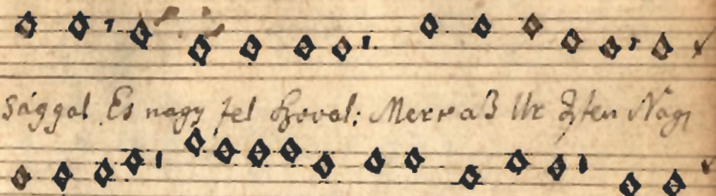 sággal Es nagy fel Szoval: Merraß Ur Isten Nagy